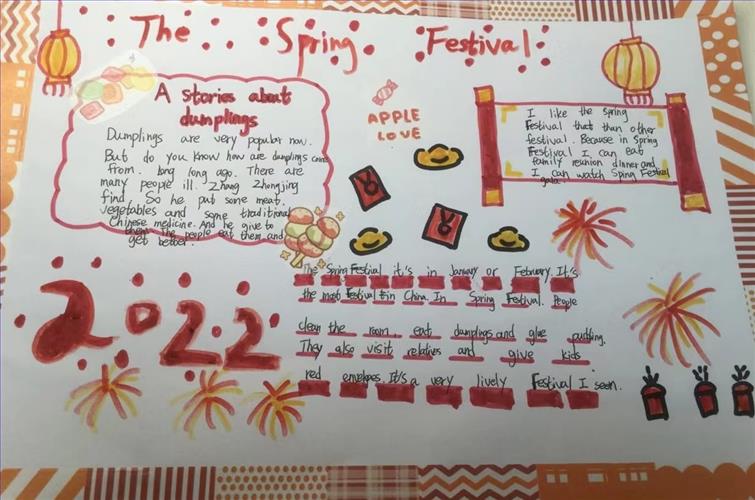 The Spring Festival
A stories about
dumplings
Dumplings are very popular now.
But do you know how are dumplings come
from. long long ago. There are
many people ill. Zhang Zhongjing
find. So he put some meat.
vegetables and some traditional
Chinese medicine. And he give to
them. The people eat them and
get better.
APPLE
LOVE
I like the spring
Festival that than other
festival. Because in Spring
Festival I can eat
family reunion dinner and
I can watch Sping Festival
gala.
The Spring Festival it's in January or February. It's
the most Festival in China. In Spring Festival. People
clean the room. eat dumplings and glue pudding.
They also visit relatives and give kids
red envelopes. It's a very lively Festival I seen.
2022